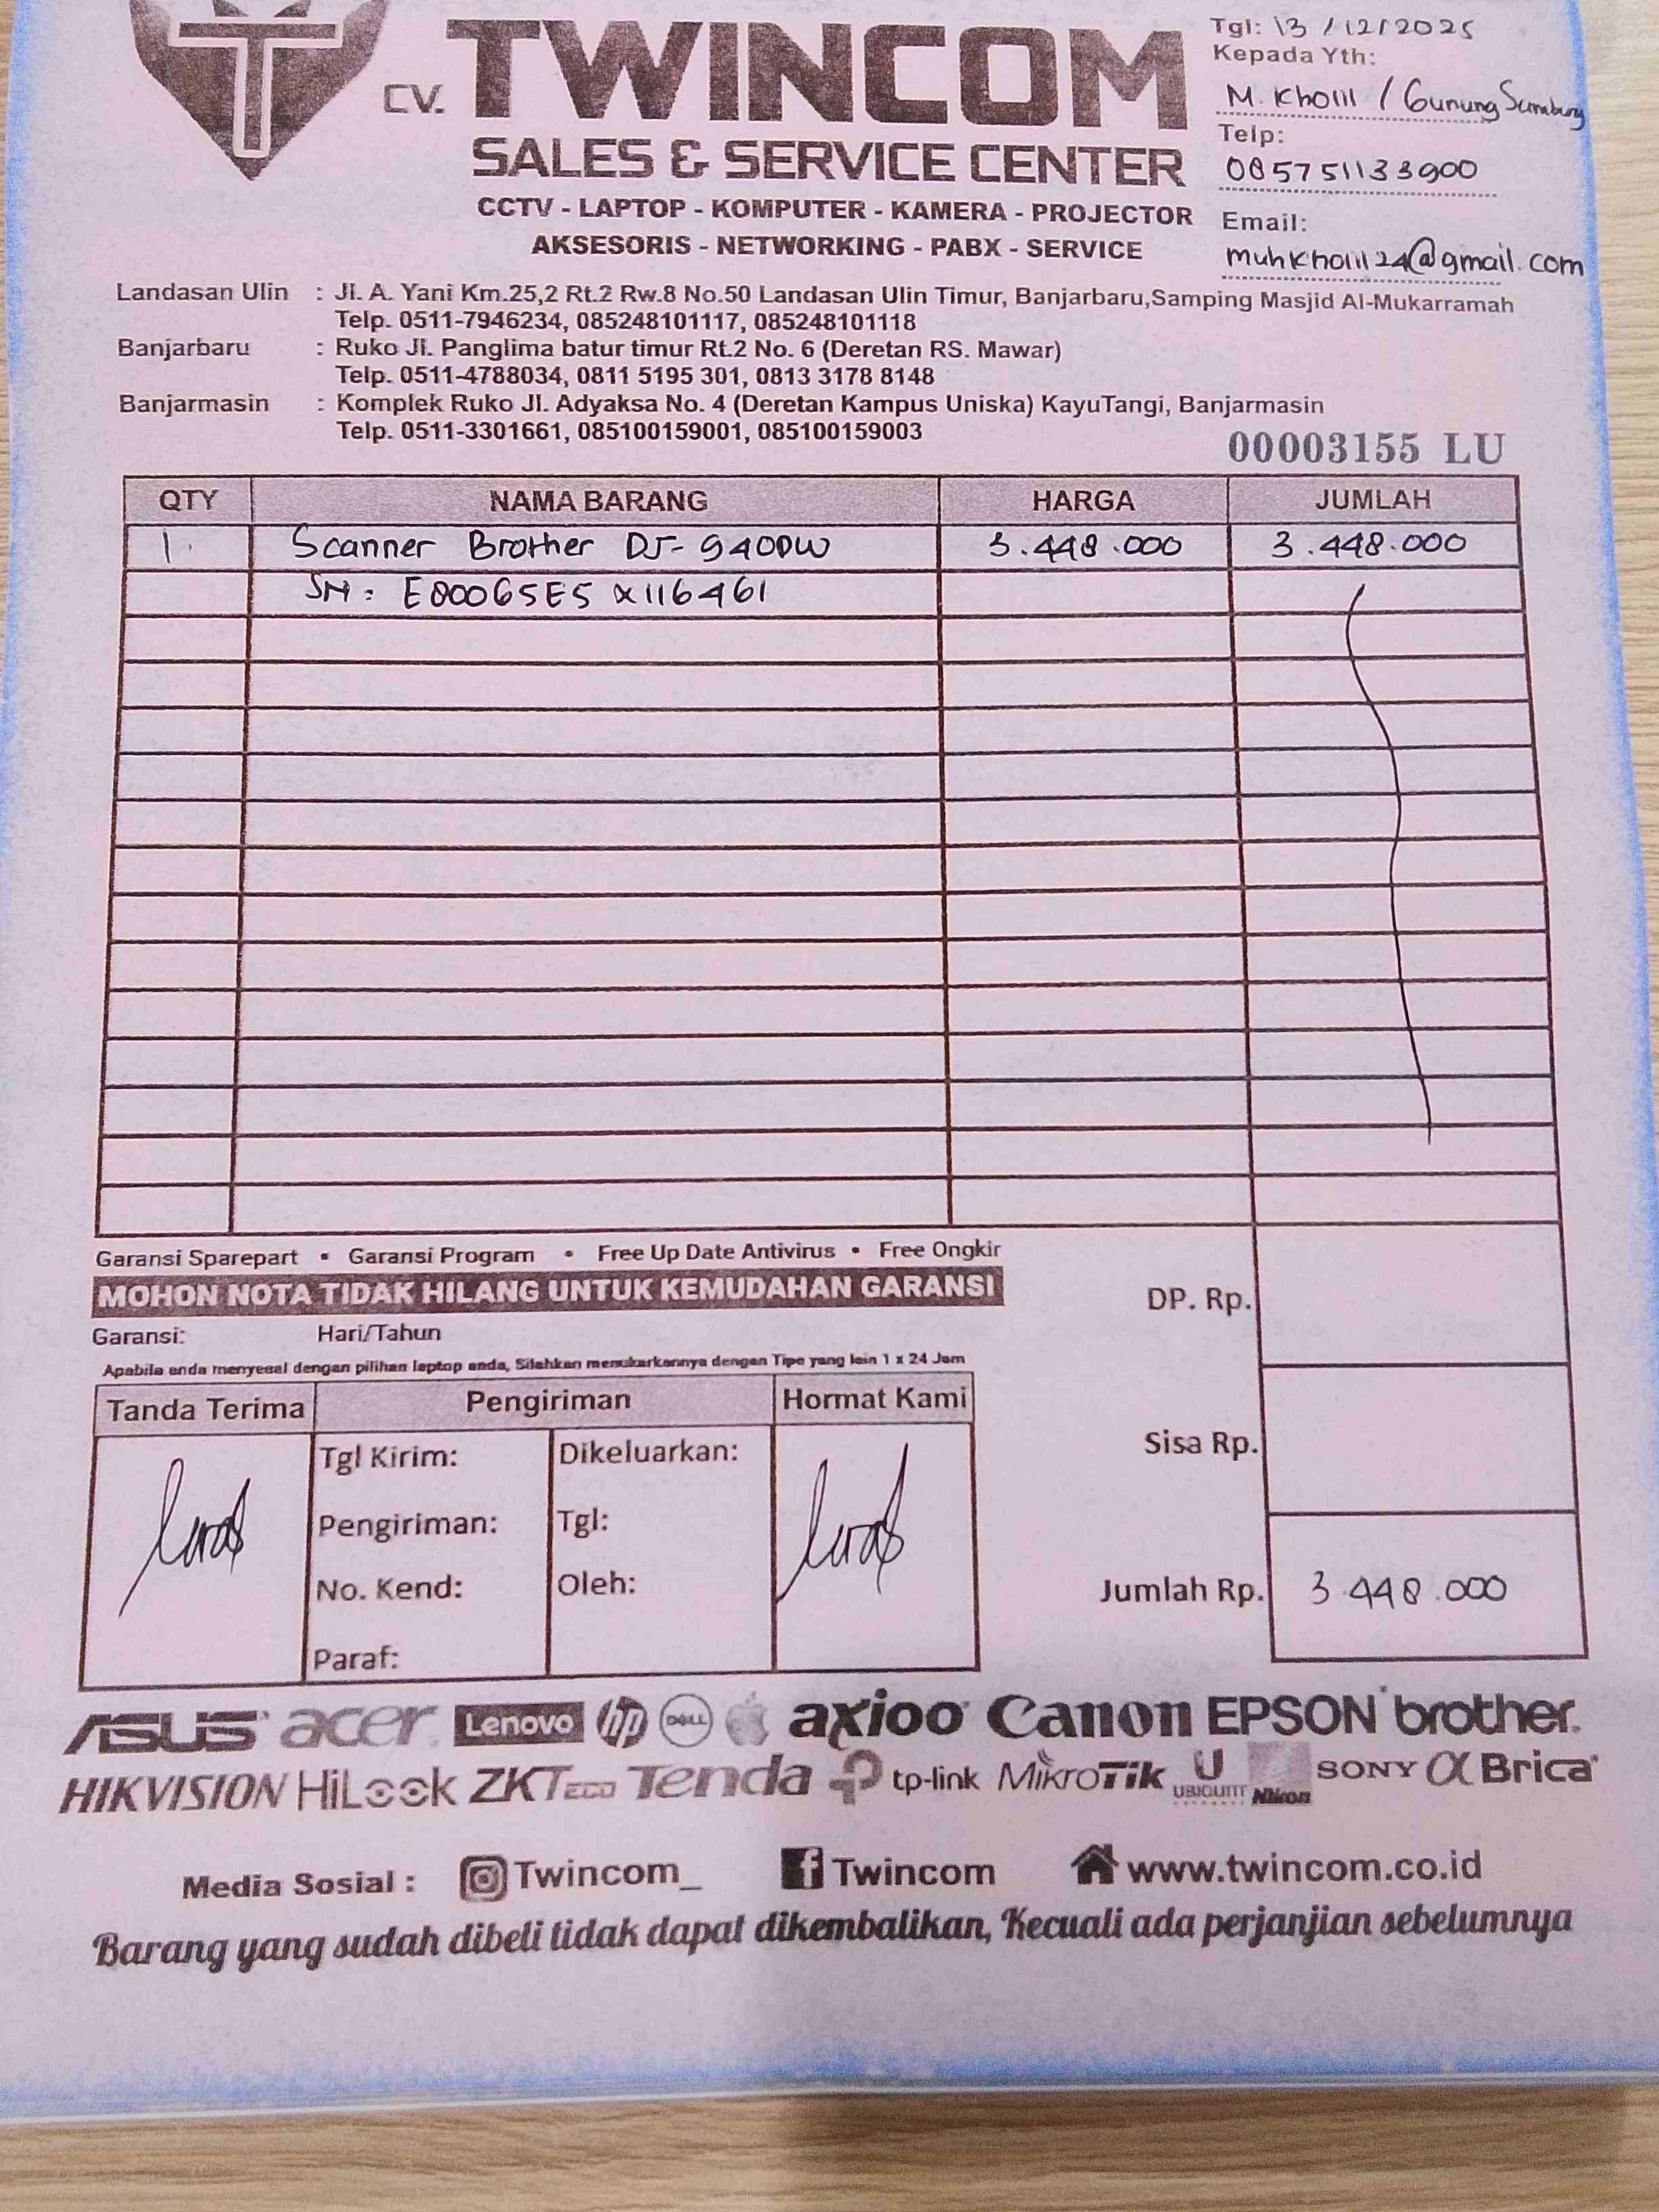 TWINCOM
CV.
SALES & SERVICE CENTER
CCTV - LAPTOP - KOMPUTER - KAMERA - PROJECTOR
AKSESORIS - NETWORKING - PABX - SERVICE
Tgl: 13 / 12 / 2025
Kepada Yth:
M. Kholil / Gunung
Telp:
085751133900
Email:
muhkholil24@gmail.com
Landasan Ulin : Jl. A. Yani Km.25,2 Rt.2 Rw.8 No.50 Landasan Ulin Timur, Banjarbaru,Samping Masjid Al-Mukarramah
Telp. 0511-7946234, 085248101117, 085248101118
Banjarbaru : Ruko Jl. Panglima batur timur Rt.2 No. 6 (Deretan RS. Mawar)
Telp. 0511-4788034, 0811 5195 301, 0813 3178 8148
Banjarmasin : Komplek Ruko Jl. Adyaksa No. 4 (Deretan Kampus Uniska) KayuTangi, Banjarmasin
Telp. 0511-3301661, 085100159001, 085100159003
00003155 LU
QTY NAMA BARANG HARGA JUMLAH
1. Scanner Brother DS-940DW 3.448.000 3.448.000
SN: E80065E5X116461
Garansi Sparepart • Garansi Program • Free Up Date Antivirus • Free Ongkir
MOHON NOTA TIDAK HILANG UNTUK KEMUDAHAN GARANSI
Garansi: Hari/Tahun
Apabila anda menyesal dengan pilihan laptop anda, Silahkan menukarkannya dengan Tipe yang lain 1 x 24 Jam
DP. Rp.
Sisa Rp.
Jumlah Rp. 3.448.000
Tanda Terima Pengiriman Hormat Kami
Tgl Kirim: Dikeluarkan:
Pengiriman: Tgl:
No. Kend: Oleh:
Paraf:
ASUS acer Lenovo hp DELL axioo Canon EPSON brother
HIKVISION HiLook ZKTeco Tenda tp-link MikroTik U UBIQUITI Nikon SONY α Brica
Media Sosial : Twincom_ f Twincom www.twincom.co.id
Barang yang sudah dibeli tidak dapat dikembalikan, Kecuali ada perjanjian sebelumnya